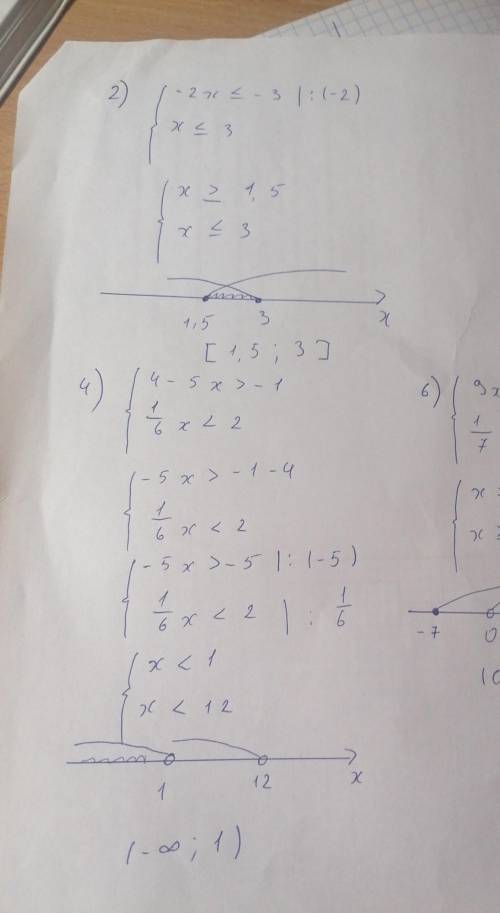 2) { -2x ≤ -3 | : (-2)
x ≤ 3
{ x ≥ 1,5
x ≤ 3
1,5 3 x
[ 1,5 ; 3 ]
4) { 4 - 5x > -1
1/6 x < 2
{ -5x > -1 - 4
1/6 x < 2
{ -5x > -5 | : (-5)
1/6 x < 2 | : 1/6
{ x < 1
x < 12
1 12 x
(-∞ ; 1)
6) { 9x
1/7
{ x
x
-7 0